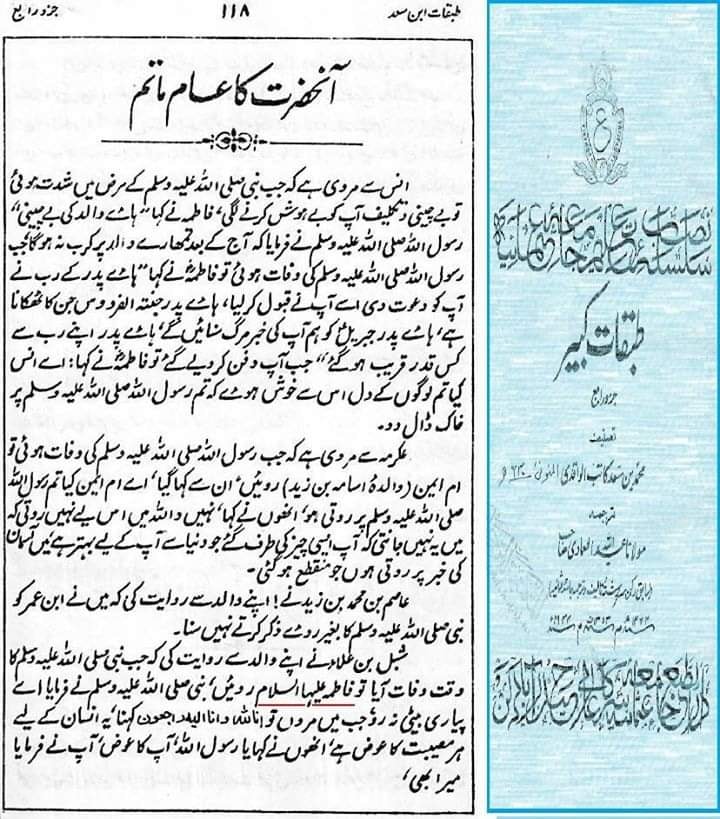 طبقات ابن سعد
۱۱۸
جزو رابع
انحضرت کا عام ماتم
انس سے مروی ہے کہ جب نبی صلی اللہ علیہ وسلم کے مرض میں شدت ہوئی
تو بے چینی و تکلیف آپ کو بے ہوش کرنے لگی، فاطمہ نے کہا "ہائے والد کی بے چینی"
رسول اللہ صلی اللہ علیہ وسلم نے فرمایا کہ آج کے بعد تمھارے والد پر کرب نہ ہوگا، جب
رسول اللہ صلی اللہ علیہ وسلم کی وفات ہوئی تو فاطمہؓ نے کہا "ہائے پدر کے رب نے
آپ کو دعوت دی اسے آپ نے قبول کرلیا، ہائے پدر جنتہ الفردوس جن کا ٹھکانا
ہے، ہائے پدر جبریلؑ کو ہم آپ کی خبر مرگ سنائیں گے، ہائے پدر اپنے رب سے
کس قدر قریب ہوگئے" جب آپ دفن کردیے گئے تو فاطمہؓ نے کہا : اے انس
کیا تم لوگوں کے دل اس سے خوش ہوئے کہ تم رسول اللہ صلی اللہ علیہ وسلم پر
خاک ڈال دو۔
عکرمہ سے مروی ہے کہ جب رسول اللہ صلی اللہ علیہ وسلم کی وفات ہوئی تو
ام ایمن (والدۂ اسامہ بن زید) روئیں' ان سے کہا گیا' اے ام ایمن کیا تم رسول اللہ
صلی اللہ علیہ وسلم پر روتی ہو' انھوں نے کہا' نہیں واللہ میں اس لیے نہیں روتی کہ
میں یہ نہیں جانتی کہ آپ ایسی چیز کی طرف گئے جو دنیا سے آپ کے لیے بہتر ہے' میں آسمان
کی خبر پر روتی ہوں جو منقطع ہوگئی۔
عاصم بن محمد بن زید نے اپنے والد سے روایت کی کہ میں نے ابن عمر کو
نبی صلی اللہ علیہ وسلم کا بغیر روئے ذکر کرتے نہیں سنا۔
شبل بن علاء نے اپنے والد سے روایت کی کہ جب نبی صلی اللہ علیہ وسلم کا
وقت وفات آیا تو فاطمہ علیہا السلام روئیں' نبی صلی اللہ علیہ وسلم نے فرمایا اے
پیاری بیٹی نہ رؤ جب میں مروں تو انا للہ وانا الیہ راجعون کہنا' یہ انسان کے لیے
ہر مصیبت کا عوض ہے' انھوں نے کہا یا رسول اللہ' آپ کا عوض' آپ نے فرمایا
میرا بھی'
طبقات کبیر
جزو رابع
تصنیف
محمد بن سعد کاتب الواقدی المتوفی
ترجمہ
مولانا عبد اللہ العمادی صاحب